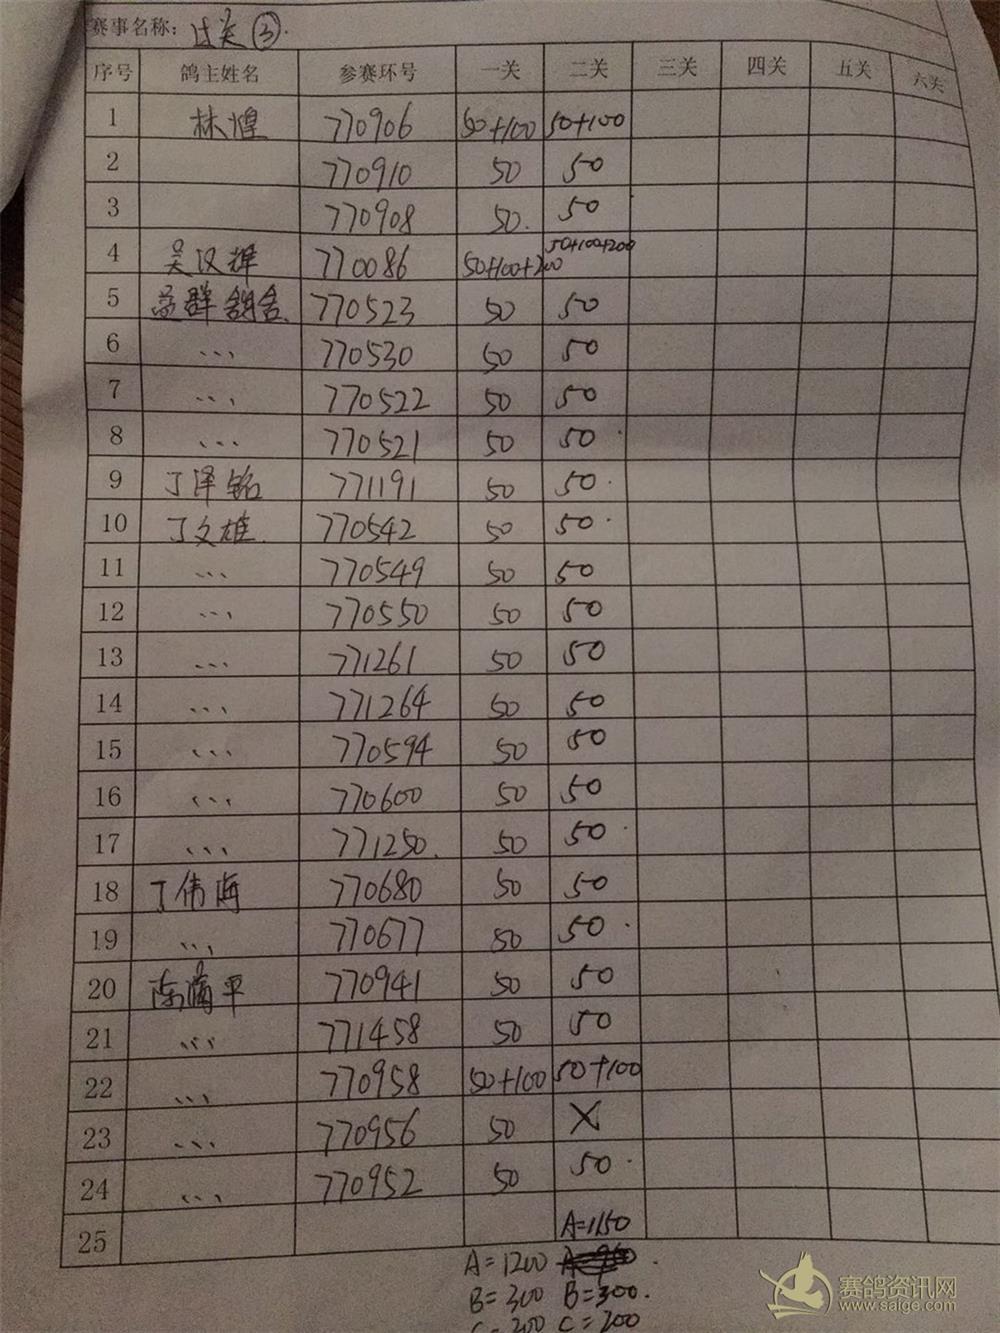 赛事名称: 过关③.
序号 鸽主姓名 参赛环号 一关 二关 三关 四关 五关 六关
1 林煌 770906 50+100 50+100
2 770910 50 50
3 770908 50. 50
4 吴汉辉 770086 50+100+200 50+100+200
5 群鸽舍. 770523 50 50
6 、、、 770530 50 50
7 、、、 770522 50 50
8 、、、 770521 50 50.
9 丁泽铭 771191 50 50.
10 丁文雄. 770542 50 50.
11 、、、 770549 50 50
12 、、、 770550 50 50
13 、、、 771261 50 50
14 、、、 771264 50 50
15 、、、 770594 50 50
16 、、、 770600 50 50
17 、、、 771250. 50 50.
18 丁伟海 770680 50 50
19 、、、 770677 50 50.
20 平 770941 50 50
21 、、、 771458 50 50
22 、、、 770958 50+100 50+100
23 、、、 770956 50 X
24 、、、 770952 50 50.
25 A=1150
A=1200
B=300 B=300.
C=200 C=200
赛鸽资讯网
www.saige.com